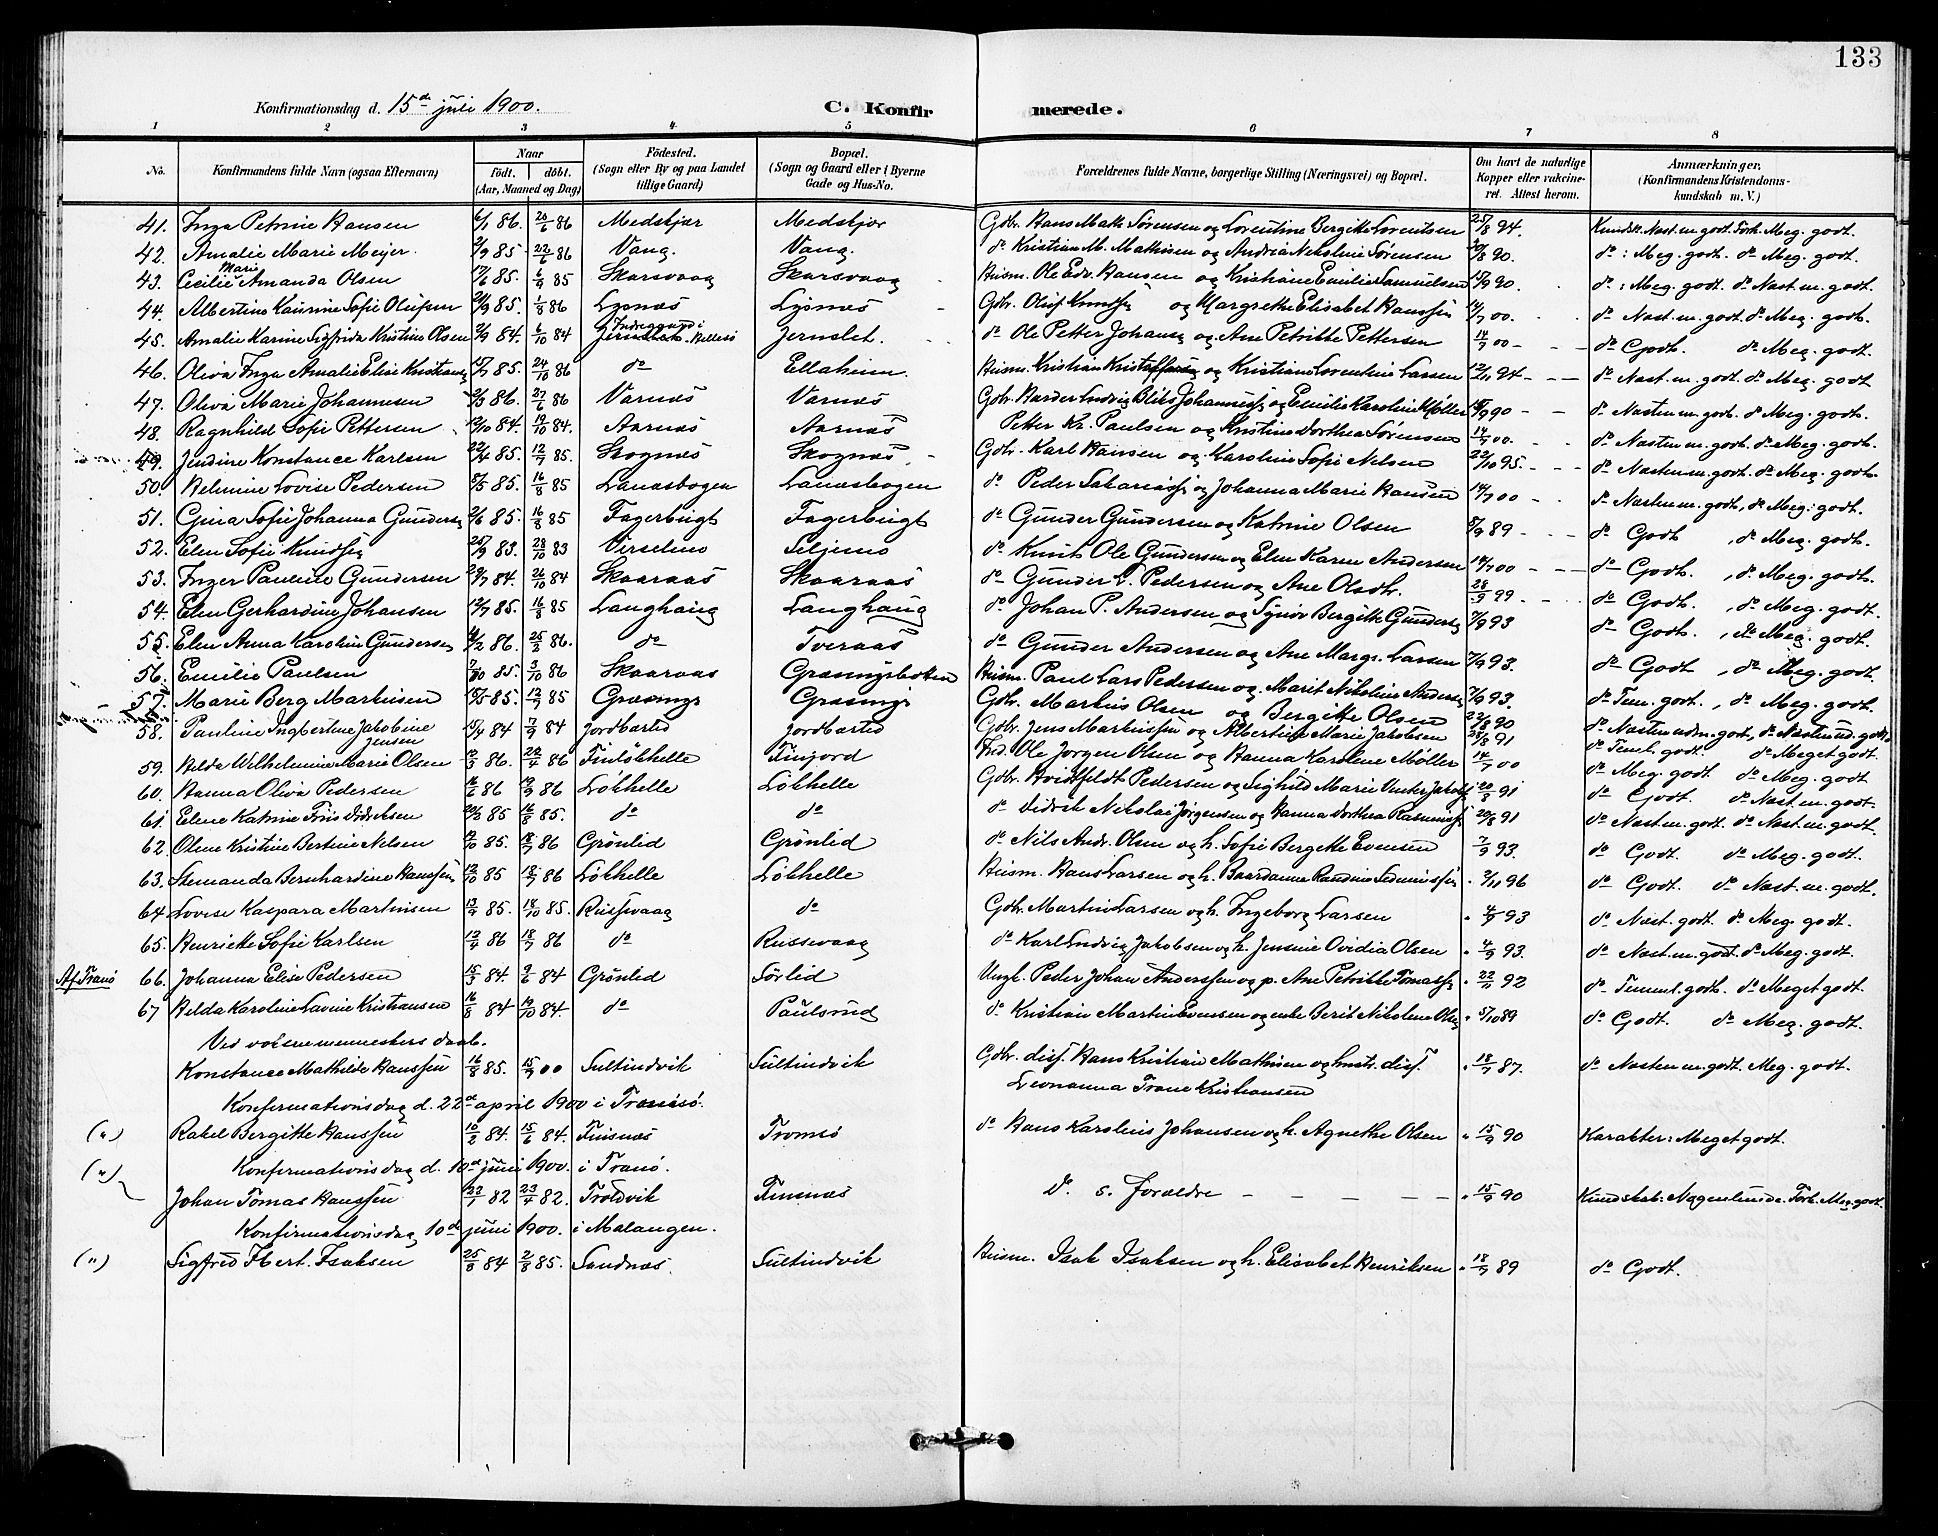 133
Konfirmationsdag d. 15de juli 1900. C. Konfirmerede.
1 2 3 4 5 6 7 8
No. Konfirmandens fulde Navn (ogsaa Efternavn) Naar Födt. döbt. (Aar, Maaned og Dag) Födested. (Sogn eller By og paa Landet tillige Gaard) Bopæl. (Sogn og Gaard eller i Byerne Gade og Hus-No. Forældrenes fulde Navne, borgerlige Stilling (Næringsvei) og Bopæl. Om havt de naturlige Kopper eller vakcineret. Attest herom. Anmærkninger. (Konfirmandens Kristendomskundskab m. V.)
41. Inga Petrine Hansen 6/1 86. 20/6 86 Medskjær Medskjær Gbr. Hans Math. Sørensen og Lorentine Bergitte Lorentsen 25/8 94. Kundsk. Nast. m. godt. Forh. Meg. godt.
42. Amalie Marie Meijer. 2/9 85 22/6 86 Vang. Vang. do Kristian M. Mathisen og Andrea Nikoline Sørensen 20/8 90. do: Meg. godt. do Meg. godt.
43. Cecilie Marie Amanda Olsen 17/6 85. 6/9 85 Skarsvaag Skarsvaag Husm. Ole Edv. Hansen og Kristiane Emilie Samuelsen 15/9 90. do: Meg. godt. do Nast. m. godt.
44. Albertine Laurine Sofie Olufsen 24/9 85. 1/8 86 Lysnæs Lysnæs Gbr. Oluf Knudsen og Margrethe Elisabet Hanssen 14/7 00. do Nast. m. godt. do Meg. godt.
45. Amalie Karine Sigfrida Kristine Olsen 2/9 84. 6/10 84 Indregaard i Hillesö Jernslet. do Ole Petter Johansen og Ane Petrikke Pettersen 14/7 00 do Godt. do Meg. godt.
46. Oliva Inga Amalie Elise Kristiansen 15/7 85. 24/10 86 do Ellaheim. Husm. Kristian Kristoffersen og Kristiane Lorentine Larsen 12/11 94 do Nast. m. godt. do Meg. godt
47. Oliva Marie Johannesen 2/3 86. 27/6 86 Varnæs Varnæs Gbr. Harder Ludvig Bliks Johannessen og Emilie Karoline Møller 15/9 90 do Nasten m. godt. do Meg. godt.
48. Ragnhild Sofie Pettersen 12/10 84. 19/10 84. Aarnæs Aarnæs Petter Kr. Paulsen og Kristine Dorthea Sørensen 14/7 00. do Nasten m. godt. do Meg. godt.
49. Jendine Konstance Karlsen 22/4 85. 12/7 85. Skognæs Skognæs Gbr. Karl Hansen og Karoline Sofie Nelsen 22/10 95. do Nasten m. godt. do Meg. godt.
50. Helmine Lovise Pedersen 5/5 85. 16/8 85 Lanæsbogen Lanæsbogen do Peder Sakariassen og Johanna Marie Hansen 14/7 00 do Nasten m. godt, do Meg. godt.
51. Gina Sofie Johanna Gundersen 2/6 85. 16/8 85 Fagerbugt Fagerbugt do Gunder Gundersen og Katrine Olsen 5/9 89 do Godt, do Meg. godt.
52. Elen Sofie Knudsen 25/9 83. 28/10 83 Virselmo Seljemo do Knut Ole Gundersen og Elen Karen Andersen 14/7 00 do Godt., do Meg. godt.
53. Inger Pauline Gundersen 29/7 84. 26/10 84 Skaaraas Skaaraas do Gunder E. Pedersen og Ane Olsdtr. 28/9 99 do Godt., do Meg. godt.
54. Elen Gerhardine Johansen 12/7 85. 16/8 85 Langhaug Langhaug do Johan P. Andersen og Synöv Bergitte Gundersen 7/9 93 do Godt., do Meg. godt.
55. Elen Anna Karoline Gundersen 4/2 86. 25/2 86. do Tveraas do Gunder Andersen og Ane Margr. Larsen 7/9 93. do Godt, do Meg. godt.
56. Emilie Paulsen 7/10 85. 3/10 86 Skaaraas Græsmyrbotten Husm. Paul Lars Pedersen og Marit Nikoline Andersen 7/9 93. do Tem. godt., do Meg. godt.
57. Marie Berg Markusen 15/5 85. 12/7 85 Græsmyr Græsmyr Gbr. Markus Olsen og Bergitte Olsen 22/8 90 do Nasten udm. godt, do Nasten ud. godt.
58. Pauline Ingbertine Jakobine Jensen 15/4 84 7/9 84 Jordbarted Jordbarted Gbr. Jens Markussen og Albertine Marie Jakobsen 28/8 91 do Teml. godt. do Meget godt.
59. Hilda Wilhelmine Marie Olsen 12/3 86. 22/4 86 Finlökhelle Finjord Ind. Ole Jörgen Olsen og Hanna Karolene Møller 14/7 00 do Meg. godt do Meg. godt.
60. Hanna Oliva Pedersen 16/6 86 19/9 86 Lökhelle Lökhelle Gbr. Hvidtfeldt Pedersen og Sighild Marie Winter Jakobsen 20/8 91 do Godt. do Nast. m. godt.
61. Elene Katrine Friis Didriksen 20/3 85 16/8 85. do do do Didrik Nikolai Jørgensen og Hanna Dorthea Rasmussen 20/8 91 do Nast. m. godt. do Nast. m. godt.
62. Oline Kristine Bertine Nelsen 12/10 85. 18/7 86 Grönlid Grönlid do Nils Andr. Olsen og h. Sofie Bergette Evensen 7/9 93. do Godt. do Meg. godt.
63. Stemanda Bernhardine Hanssen 12/10 85 18/7 86 Lökhelle Lökhelle Husm. Hans Larsen og h. Baardanna Randine 2/11 96 do Godt. do Nast. m. godt.
64. Lovise Kaspara Martinsen 13/9 85. 18/10 85. Russevaag do Gbr. Martin Larsen og h. Ingeborg Larsen 4/9 93 do Nast. godt. do Meg. godt.
65. Henriette Sofie Karlsen 12/4 86 18/7 86 do Russevaag do Karl Ludvig Jakobsen og h. Jensine Ovidia Olsen 4/9 93. do Nast. m. godt do Meg. godt.
Af Tranö 66. Johanna Elise Pedersen 15/3 84. 9/6 84 Grönlid Sörlid Ungk. Peder Johan Anderssen og p. Ane Petrikke Tomassen 22/11 92 do Temml. godt. do Meget godt.
67 Hilda Karoline Lavine Kristiansen 16/8 84 19/10 84. do Paulsrud do Kristian Martin Evensen og enke Berit Nikoline Olsen 5/10 89 do Godt. do Meg. godt.
Ved voksne menneskers daab.
Konstance Mathilde Hanssen 16/8 85. 15/7 00 Sultindvik Sultindvik Gbr. diss. Hans Kristian Mathisen og hustr. diss. Leonanna Trane Kristiansen 18/7 87. do Nasten m. godt. Meg. godt.
Konfirmationsdag d. 22de april 1900 i Tromsö.
(") Rakel Bergitte Hanssen 10/2 84. 15/6 84. Finsnæs Tromsö do Hans Karolius Johansen og h. Agnethe Olsen 15/9 90 Karakter: Meget godt.
(") Konfirmationsdag d. 10de juni 1900. i Tranö.
Johan Tomas Hanssen 22/1 82 23/4 82. Troldvik Finsnæs D. s. forældre 15/9 90 Kundskab: Nogenlunde. Forh. Meg. godt.
Konfirmationsdag 10de juni 1900. i Malangen.
(") Sigfred Hert. Isaksen 25/8 84 2/8 85. Sandnæs. Sultindvik Husm. Isak Isaksen og h. Elisabet Henriksen 18/7 89 do Godt.